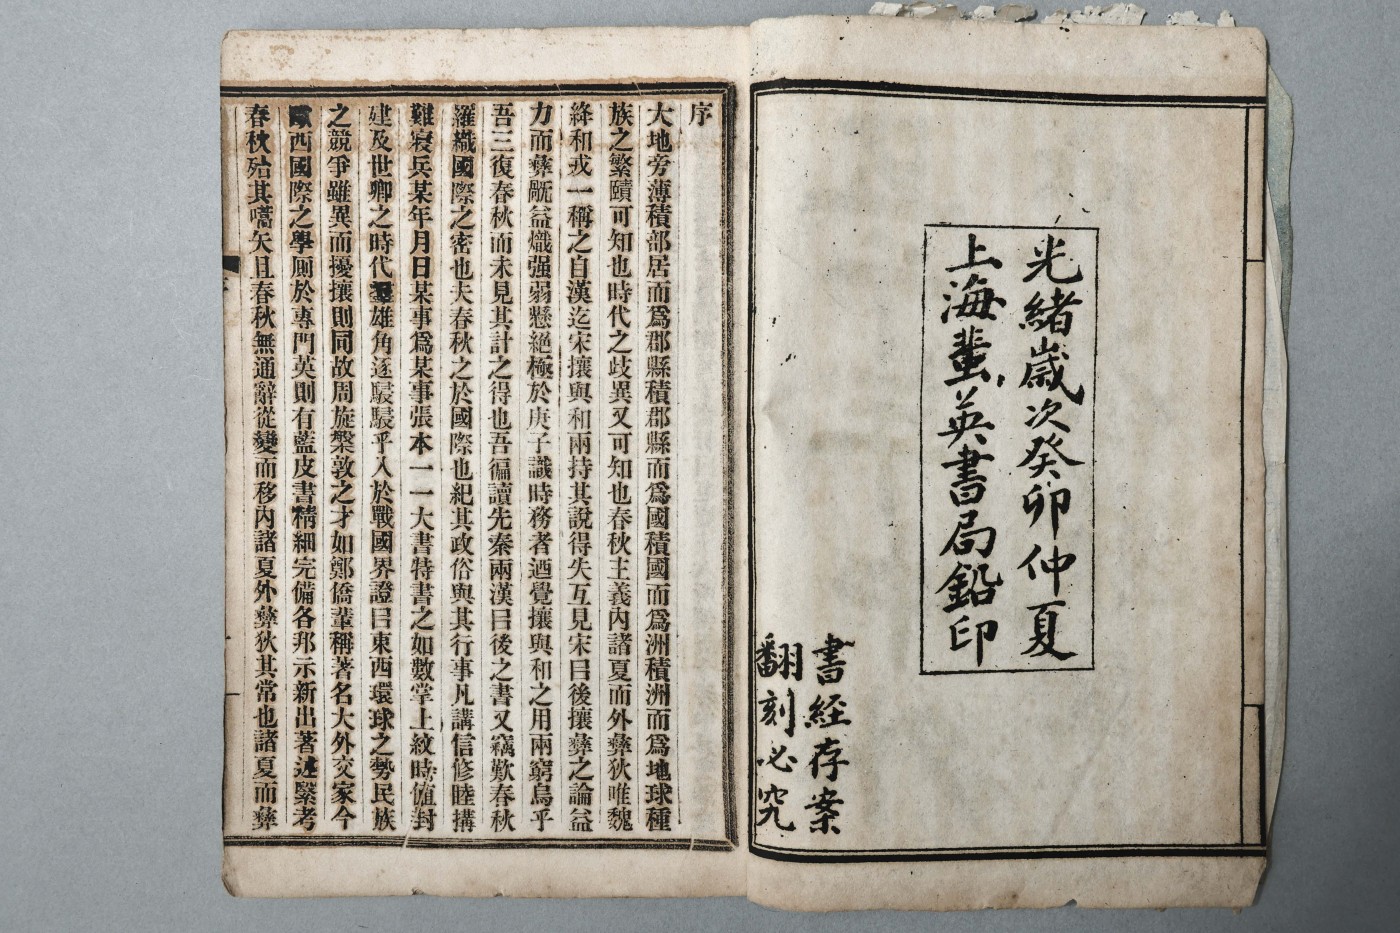 光緒歲次癸卯仲夏
上海蜚英書局鉛印
書經存案
翻刻必究
序
大地旁薄積部居而爲郡縣積郡縣而爲國積國而爲洲積洲而爲地球種
族之繁賾可知也時代之歧異又可知也春秋主義內諸夏而外彝狄唯魏
絳和戎一稱之自漢迄宋攘與和兩持其說得失互見宋曰後攘彝之論益
力而彝餁益熾强弱懸絕極於庚子識時務者迺覺攘與和之用兩窮烏乎
吾三復春秋而未見其計之得也吾徧讀先秦兩漢曰後之書又竊歎春秋
羅織國際之密也夫春秋之於國際也紀其政俗與其行事凡講信修睦搆
難寢兵某年月日某事爲某事張本一一大書特書之如數掌上紋時值封
建及世卿之時代雄角逐駸駸乎入於戰國界證曰東西環球之勢民族
之競爭雖異而擾攘則同故周旋槃敦之才如鄭僑輩稱著名大外交家今
歐西國際之學厠於專門英則有藍皮書精細完備各邦示新出著述緊考
春秋殆其嚆矢且春秋無通辭從變而移內諸夏外彝狄其常也諸夏而彝